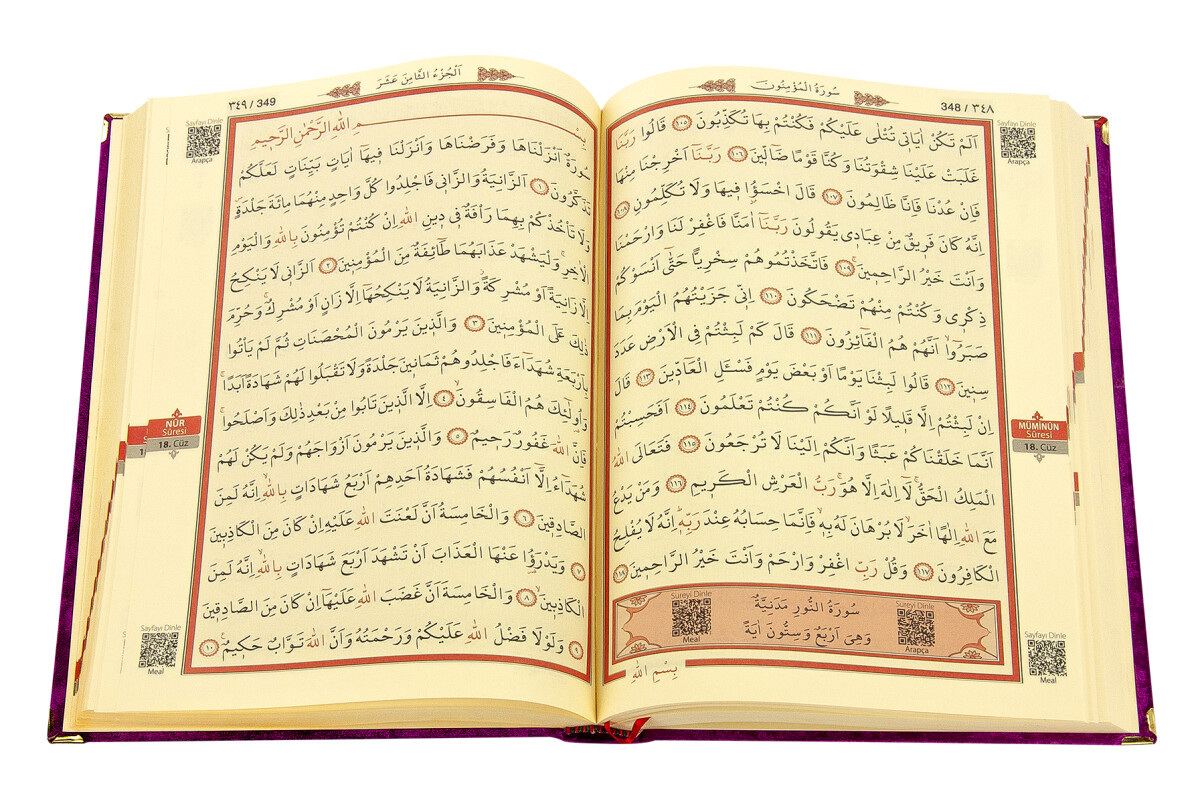 سُورَةُ الْمُؤْمِنُونَ
348 / ٣٤٨
Sayfayı Dinle
Arapça
اَلَمْ تَكُنْ اٰيَاتٖى تُتْلٰى عَلَيْكُمْ فَكُنْتُمْ بِهَا تُكَذِّبُونَ ﴿١٠٥﴾ قَالُوا رَبَّنَا
غَلَبَتْ عَلَيْنَا شِقْوَتُنَا وَكُنَّا قَوْمًا ضَٓالّٖينَ ﴿١٠٦﴾ رَبَّنَٓا اَخْرِجْنَا مِنْهَا
فَاِنْ عُدْنَا فَاِنَّا ظَالِمُونَ ﴿١٠٧﴾ قَالَ اخْسَؤُ۫ا فٖيهَا وَلَا تُكَلِّمُونِ ﴿١٠٨﴾
اِنَّهُ كَانَ فَرٖيقٌ مِنْ عِبَادٖى يَقُولُونَ رَبَّنَٓا اٰمَنَّا فَاغْفِرْ لَنَا وَارْحَمْنَا
وَاَنْتَ خَيْرُ الرَّاحِمٖينَ ﴿١٠٩﴾ فَاتَّخَذْتُمُوهُمْ سِخْرِيًّا حَتّٰٓى اَنْسَوْكُمْ
ذِكْرٖى وَكُنْتُمْ مِنْهُمْ تَضْحَكُونَ ﴿١١٠﴾ اِنّٖى جَزَيْتُهُمُ الْيَوْمَ بِمَا
صَبَرُٓوا اَنَّهُمْ هُمُ الْفَٓائِزُونَ ﴿١١١﴾ قَالَ كَمْ لَبِثْتُمْ فِى الْاَرْضِ عَدَدَ
سِنٖينَ ﴿١١٢﴾ قَالُوا لَبِثْنَا يَوْمًا اَوْ بَعْضَ يَوْمٍ فَسْـَٔلِ الْعَٓادّٖينَ ﴿١١٣﴾ قَالَ
اِنْ لَبِثْتُمْ اِلَّا قَلٖيلًا لَوْ اَنَّكُمْ كُنْتُمْ تَعْلَمُونَ ﴿١١٤﴾ اَفَحَسِبْتُمْ
اَنَّمَا خَلَقْنَاكُمْ عَبَثًا وَاَنَّكُمْ اِلَيْنَا لَا تُرْجَعُونَ ﴿١١٥﴾ فَتَعَالَى اللّٰهُ
الْمَلِكُ الْحَقُّۚ لَٓا اِلٰهَ اِلَّا هُوَۚ رَبُّ الْعَرْشِ الْكَرٖيمِ ﴿١١٦﴾ وَمَنْ يَدْعُ
مَعَ اللّٰهِ اِلٰهًا اٰخَرَۙ لَا بُرْهَانَ لَهُ بِهٖۙ فَاِنَّمَا حِسَابُهُ عِنْدَ رَبِّهٖۜ اِنَّهُ لَا يُفْلِحُ
الْكَافِرُونَ ﴿١١٧﴾ وَقُلْ رَبِّ اغْفِرْ وَارْحَمْ وَاَنْتَ خَيْرُ الرَّاحِمٖينَ ﴿١١٨﴾
MÜMİNÛN
Sûresi
18. Cüz
سُورَةُ النُّورِ مَدَنِيَّةٌ
وَهِىَ اَرْبَعٌ وَسِتُّونَ اٰيَةً
Sureyi Dinle
Arapça
Sureyi Dinle
Meal
بِسْمِ اللّٰهِ
Sayfayı Dinle
Meal
اَلْجُزْءُ الثَّامِنَ عَشَرَ
٣٤٩ / 349
Sayfayı Dinle
Arapça
بِسْــــمِ اللّٰهِ الرَّحْمٰنِ الرَّحٖيمِ
سُورَةٌ اَنْزَلْنَاهَا وَفَرَضْنَاهَا وَاَنْزَلْنَا فٖيهَٓا اٰيَاتٍ بَيِّنَاتٍ لَعَلَّكُمْ
تَذَكَّرُونَ ﴿١﴾ اَلزَّانِيَةُ وَالزَّانٖى فَاجْلِدُوا كُلَّ وَاحِدٍ مِنْهُمَا مِائَةَ جَلْدَةٍۖ
وَلَا تَأْخُذْكُمْ بِهِمَا رَأْفَةٌ فٖى دٖينِ اللّٰهِ اِنْ كُنْتُمْ تُؤْمِنُونَ بِاللّٰهِ وَالْيَوْمِ
الْاٰخِرِۚ وَلْيَشْهَدْ عَذَابَهُمَا طَٓائِفَةٌ مِنَ الْمُؤْمِنٖينَ ﴿٢﴾ اَلزَّانٖى لَا يَنْكِحُ
اِلَّا زَانِيَةً اَوْ مُشْرِكَةًۘ وَالزَّانِيَةُ لَا يَنْكِحُهَٓا اِلَّا زَانٍ اَوْ مُشْرِكٌۚ وَحُرِّمَ
ذٰلِكَ عَلَى الْمُؤْمِنٖينَ ﴿٣﴾ وَالَّذٖينَ يَرْمُونَ الْمُحْصَنَاتِ ثُمَّ لَمْ يَأْتُوا
بِاَرْبَعَةِ شُهَدَٓاءَ فَاجْلِدُوهُمْ ثَمَانٖينَ جَلْدَةً وَلَا تَقْبَلُوا لَهُمْ شَهَادَةً اَبَدًاۚ
وَاُو۬لٰٓئِكَ هُمُ الْفَاسِقُونَۙ ﴿٤﴾ اِلَّا الَّذٖينَ تَابُوا مِنْ بَعْدِ ذٰلِكَ وَاَصْلَحُواۚ
فَاِنَّ اللّٰهَ غَفُورٌ رَحٖيمٌ ﴿٥﴾ وَالَّذٖينَ يَرْمُونَ اَزْوَاجَهُمْ وَلَمْ يَكُنْ لَهُمْ
شُهَدَٓاءُ اِلَّٓا اَنْفُسُهُمْ فَشَهَادَةُ اَحَدِهِمْ اَرْبَعُ شَهَادَاتٍ بِاللّٰهِۙ اِنَّهُ لَمِنَ
الصَّادِقٖينَ ﴿٦﴾ وَالْخَامِسَةُ اَنَّ لَعْنَتَ اللّٰهِ عَلَيْهِ اِنْ كَانَ مِنَ الْكَاذِبٖينَ
﴿٧﴾ وَيَدْرَؤُا عَنْهَا الْعَذَابَ اَنْ تَشْهَدَ اَرْبَعَ شَهَادَاتٍ بِاللّٰهِۙ اِنَّهُ لَمِنَ
الْكَاذِبٖينَۙ ﴿٨﴾ وَالْخَامِسَةَ اَنَّ غَضَبَ اللّٰهِ عَلَيْهَٓا اِنْ كَانَ مِنَ الصَّادِقٖينَ
﴿٩﴾ وَلَوْلَا فَضْلُ اللّٰهِ عَلَيْكُمْ وَرَحْمَتُهُ وَاَنَّ اللّٰهَ تَوَّابٌ حَكٖيمٌ ﴿١٠﴾
NÛR
Sûresi
18. Cüz
Sayfayı Dinle
Meal